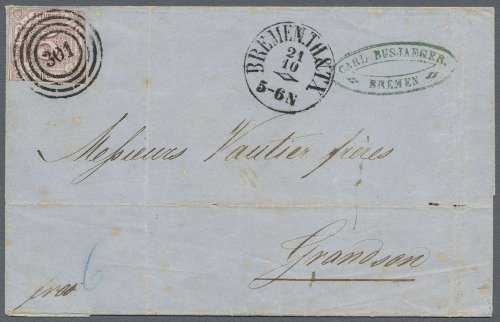 301
BREMEN.TH.&TX.
21
10
5-6N
CARL BUSJAEGER.
BREMEN
Messieurs Vautier frères
Grandson
6